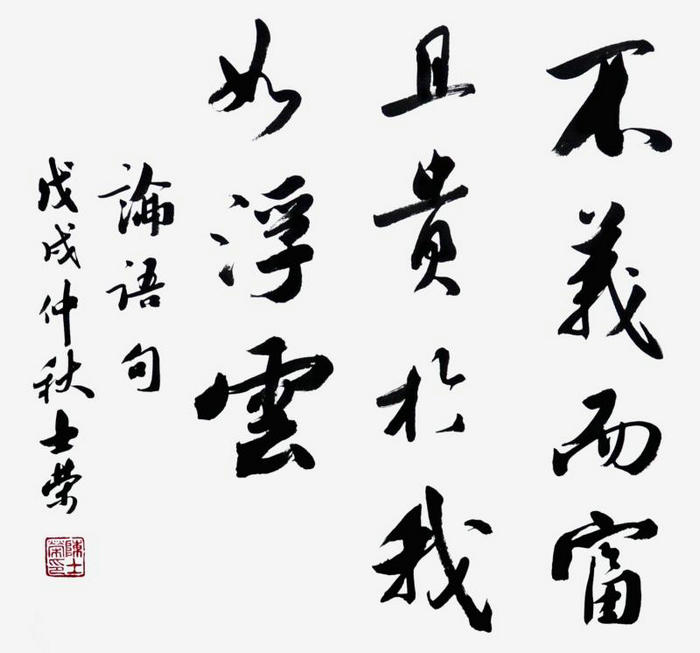 不義而富
且貴於我
如浮雲
論語句
戊戌仲秋士榮
陳士榮印